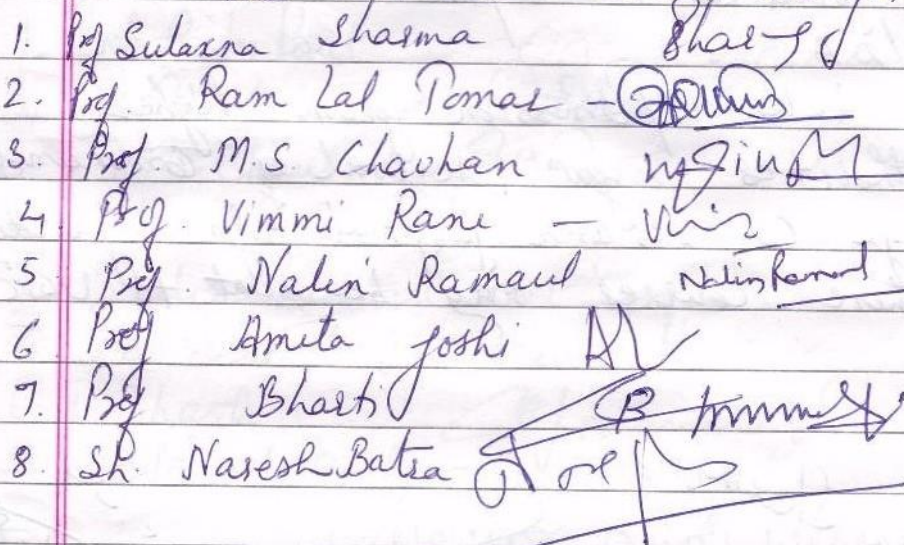 1. Prof Sulaxna Sharma
2. Prof. Ram Lal Tomar -
3. Prof. M.S. Chauhan
4 Prof. Vimmi Rane —
5 Prof. Nalin Ramaul Nalin Ramaul
6 Prof Amita Joshi
7. Prof Bharti
8. Sh. Naresh Batra